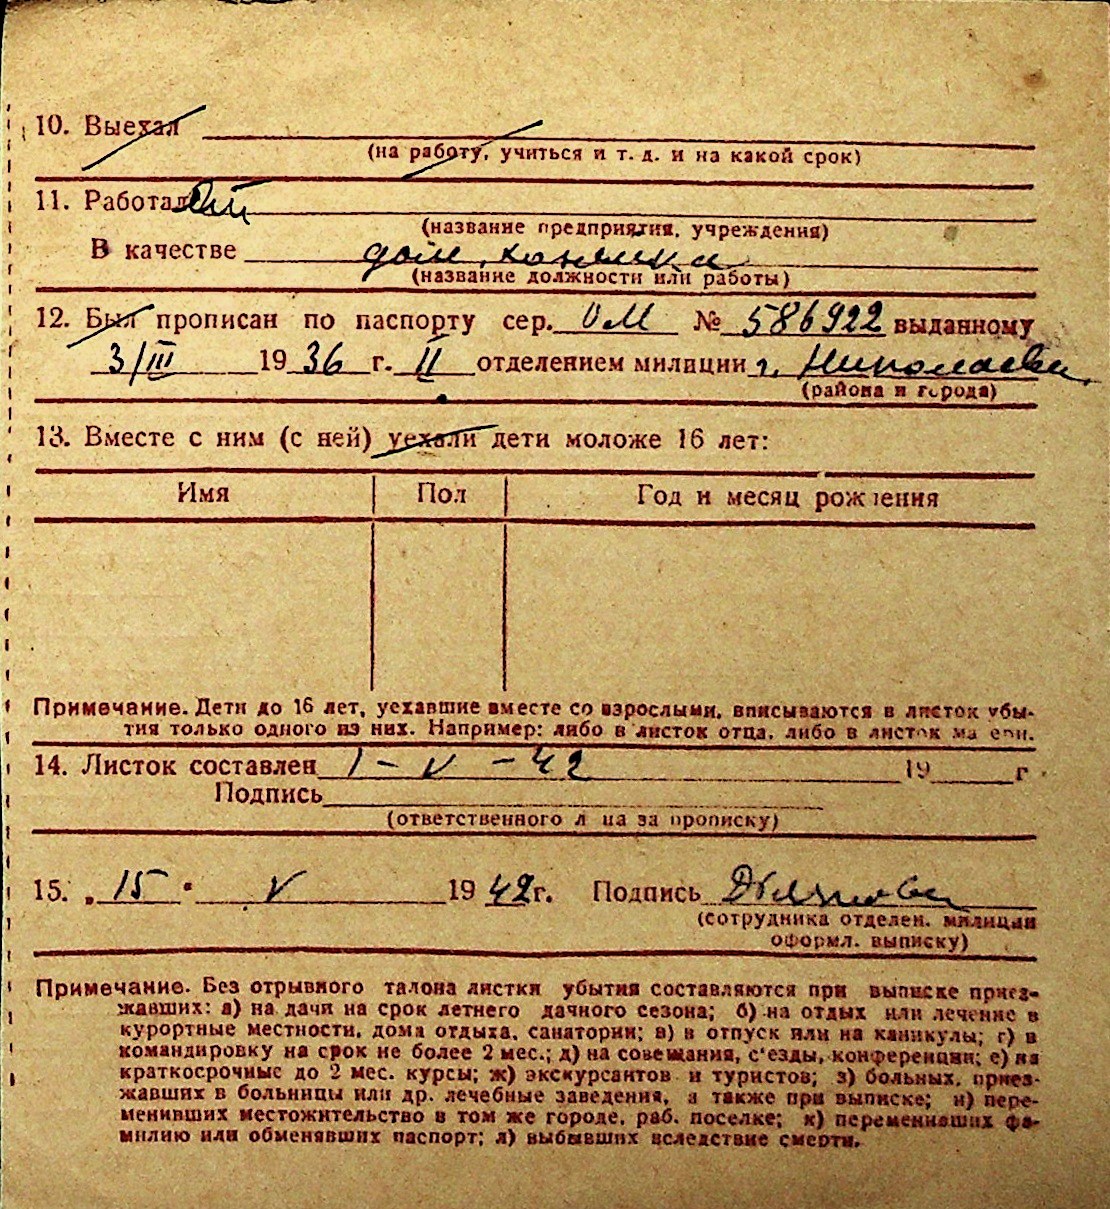 10. Выехал
(на работу, учиться и т. д. и на какой срок)
11. Работал
(название предприятия, учреждения)
В качестве дом. хозяйка
(название должности или работы)
12. Был прописан по паспорту сер. ОМ № 586922 выданному
3/III 1936 г. II отделением милиции г. Николаева
(района и города)
13. Вместе с ним (с ней) уехали дети моложе 16 лет:
Имя Пол Год и месяц рождения
Примечание. Дети до 16 лет, уехавшие вместе со взрослыми, вписываются в листок убы-
тия только одного из них. Например: либо в листок отца, либо в листок матери.
14. Листок составлен 1 - V - 42 19 г
Подпись
(ответственного лица за прописку)
15. „15" V 1942г. Подпись
(сотрудника отделен. милиции
оформл. выписку)
Примечание. Без отрывного талона листки убытия составляются при выписке приез-
жавших: а) на дачи на срок летнего дачного сезона; б) на отдых или лечение в
курортные местности, дома отдыха, санатории; в) в отпуск или на каникулы; г) в
командировку на срок не более 2 мес.; д) на совещания, с'езды, конференции; е) на
краткосрочные до 2 мес. курсы; ж) экскурсантов и туристов; з) больных, приез-
жавших в больницы или др. лечебные заведения, а также при выписке; и) пере-
менивших местожительство в том же городе, раб. поселке; к) переменивших фа-
милию или обменявших паспорт; л) выбывших вследствие смерти.